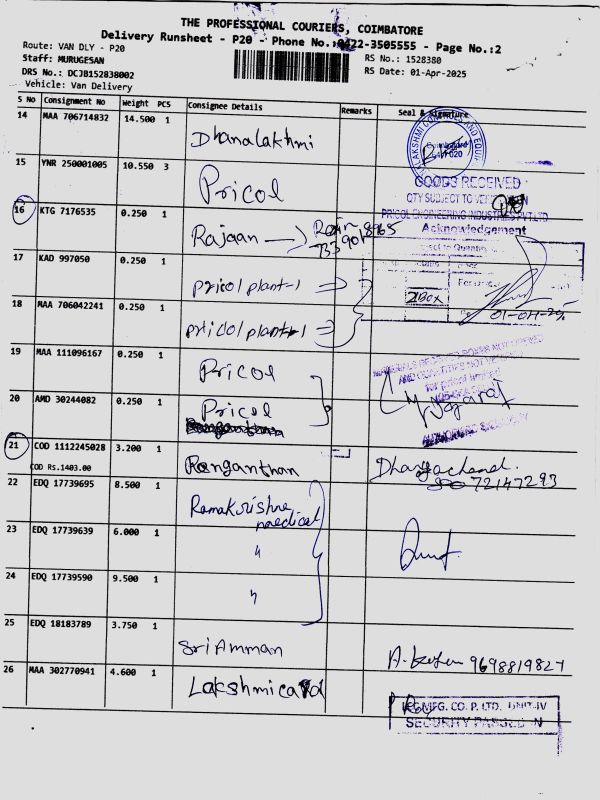 THE PROFESSIONAL COURIERS, COIMBATORE
Delivery Runsheet - P20 - Phone No.:0422-3505555 - Page No.:2
Route: VAN DLY - P20
Staff: MURUGESAN
RS No.: 1528380
DRS No.: DCJB152838002
RS Date: 01-Apr-2025
Vehicle: Van Delivery
S No Consignment No Weight PCS Consignee Details Remarks Seal & Signature
14 MAA 706714832 14.500 1 Dhanalakhmi
15 YNR 250001005 10.550 3 Pricol
GOODS RECEIVED
PRICOL ENGINEERING INDUSTRIES PVT.LTD
Acknowledgement
16 KTG 7176535 0.250 1 Rajaan
17 KAD 997050 0.250 1 pricol plant-1
2Box
18 MAA 706042241 0.250 1 pricol plant-1
19 MAA 111096167 0.250 1 Pricol
20 AMD 30244082 0.250 1 Pricol
21 COD 1112245028 3.200 1 Ranganthan
COD Rs.1403.00
72147293
22 EDQ 17739695 8.500 1 Ramakrishna medical
23 EDQ 17739639 6.000 1 "
24 EDQ 17739590 9.500 1 "
25 EDQ 18183789 3.750 1 Sri Amman
9698819827
26 MAA 302770941 4.600 1 Lakshmi card
MFG. CO. P. LTD. UNIT-IV
SECURITY